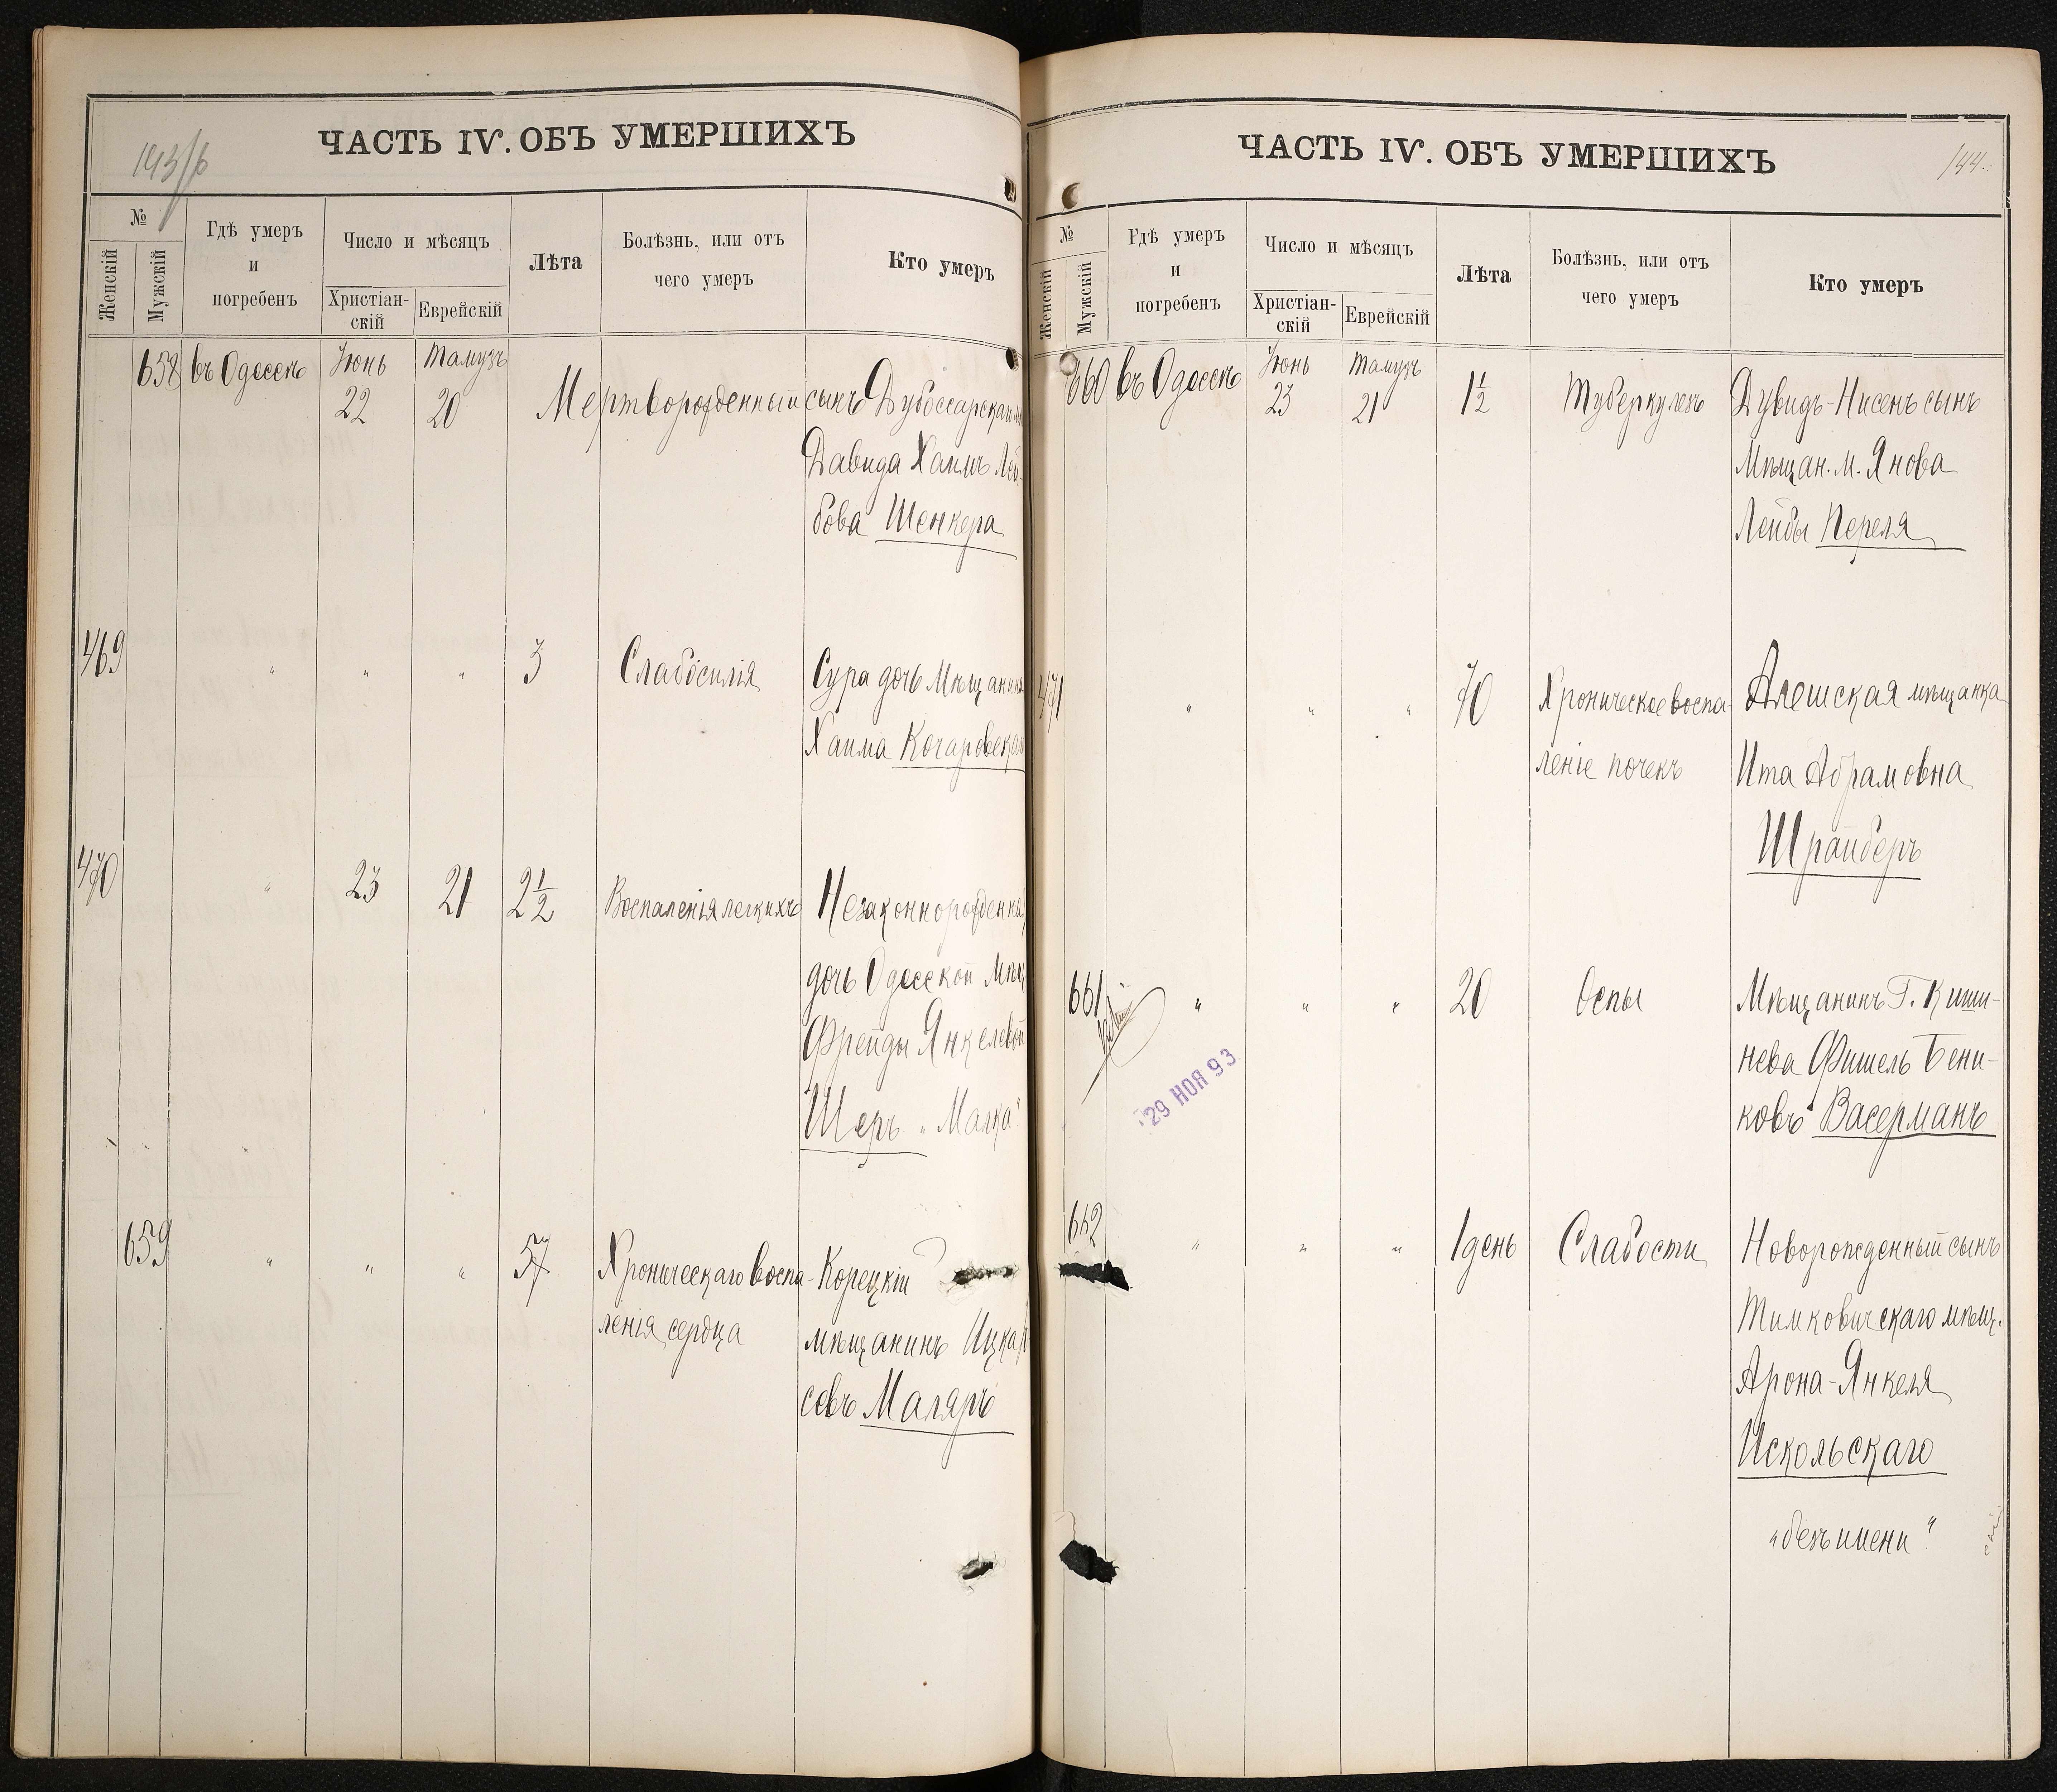 ЧАСТЬ IV. ОБЪ УМЕРШИХЪ
№
Женскій
Мужскій
Гдѣ умеръ
и
погребенъ
Число и мѣсяцъ
Христіан-
скій
Еврейскій
Лѣта
Болѣзнь, или отъ
чего умеръ
Кто умеръ
658 въ Одессѣ Іюнь Тамузъ
22 20 Мертворожденный сынъ Дубоссарскаго
Давида Хаимъ Лей-
бова Шенкера
469 " " " 3 Слабосилія Сура дочь Мѣщанина
Хаима Кочаровскаго
470 " 23 21 2½ Воспаленія легкихъ Незаконнорожденная
дочь Одесской Мѣщ
Фрейды Янкелевой
Шеръ "Малка"
659 " " " 57 Хроническаго воспа- Корецкій
ленія сердца мѣщанинъ Ицка
севъ Маляръ
ЧАСТЬ IV. ОБЪ УМЕРШИХЪ
144.
№
Женскій
Мужскій
Гдѣ умеръ
и
погребенъ
Число и мѣсяцъ
Христіан-
скій
Еврейскій
Лѣта
Болѣзнь, или отъ
чего умеръ
Кто умеръ
660 въ Одессѣ Іюнь Тамузъ
23 21 1½ Туберкулезъ Дувидъ-Нисенъ сынъ
Мѣщан. м. Янова
Лейбы Переля
471 " " " 70 Хроническое воспа- Алешская мѣщанка
леніе почекъ Ита Абрамовна
Шрайберъ
661 " " " 20 Оспы Мѣщанинъ Г. Киши-
нева Фишель Бени-
ковъ Васерманъ
29 НОЯ 93
662 " " " 1 день Слабости Новорожденный сынъ
Тимковичскаго мѣщ.
Арона-Янкеля
Искольскаго
"безъ имени"